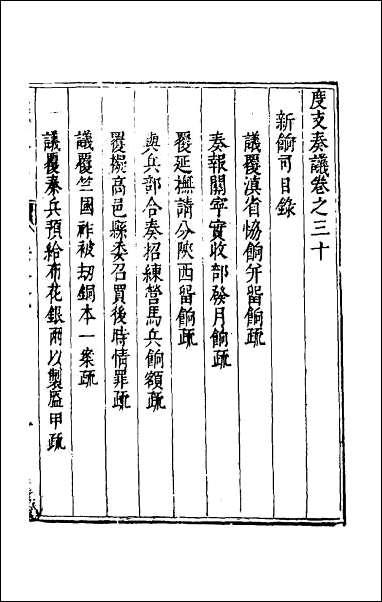 度支奏議卷之三十
新餉司目錄
議覆滇省協餉分留餉疏
奏報關寧實收部發月餉疏
覆延撫請分陝西留餉疏
與兵部合奏招練營馬兵餉額疏
覆擬高邑縣委召買後時情罪疏
議覆竺國祚被劫銅本一案疏
議覆秦兵預給布花銀兩以製盔甲疏